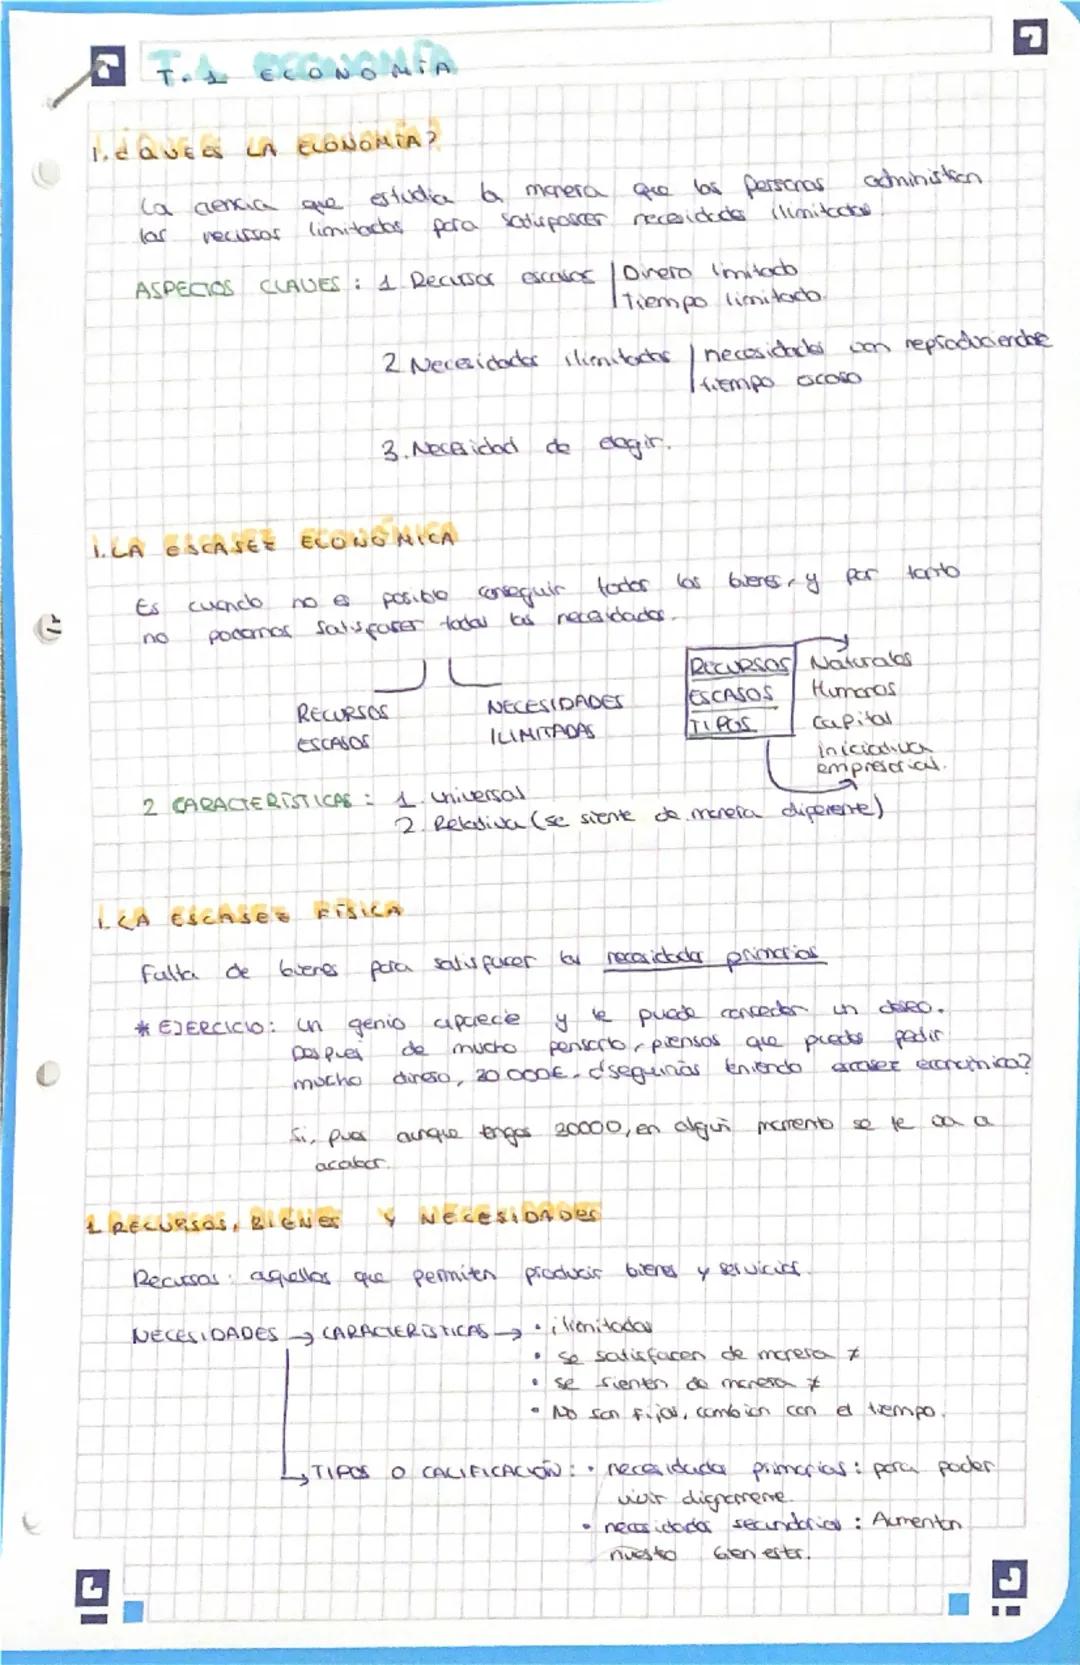 T.1 ECONOMÍA
1. ¿QUÉ ES LA ECONOMÍA?
La ciencia que estudia la manera que las personas administran
los recursos limitados para satisfascer necesidades ilimitadas.
ASPECTOS CLAVES : 1 Recursos escasos | Dinero limitado
Tiempo limitado.
2 Necesidades ilimitadas | necesidades van reproduciendose
tiempo escaso
3. Necesidad de elegir.
1. LA ESCASEZ ECONÓMICA
Es cuando no es posible conseguir todos los bienes, y por tanto
no podemos satisfacer todas las necesidades.
RECURSOS ESCASOS
NECESIDADES ILIMITADAS
RECURSOS ESCASOS TIPOS
Naturales
Humanos
Capital
iniciativa
empresarial.
2 CARACTERÍSTICAS : 1. Universal
2. Relativa (se siente de manera diferente)
1. LA ESCASEZ FÍSICA
Falta de bienes para satisfacer las necesidades primarias
* EJERCICIO: Un genio aparece y te puede conceder un deseo.
Despues de mucho pensarlo, piensas que puedes pedir
mucho dinero, 20.000€. ¿Seguirías teniendo escasez económica?
Si, pues aunque tengas 20000, en algun momento se te va a
acabar.
1 RECURSOS, BIENES Y NECESIDADES
Recursos: aquellos que permiten producir bienes y servicios.
NECESIDADES → CARACTERÍSTICAS → • ilimitadas
• se satisfacen de manera ≠
• se sienten de manera ≠
• No son fijas, cambian con el tiempo.
TIPOS O CALIFICACIÓN: • necesidades primarias: para poder
vivir dignamente.
• necesidades secundarias : Aumentan
nuestro bien estar.